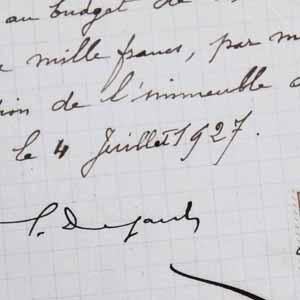 au budget de
mille francs, par m
tion de l'immeuble
le 4 Juillet 1927.